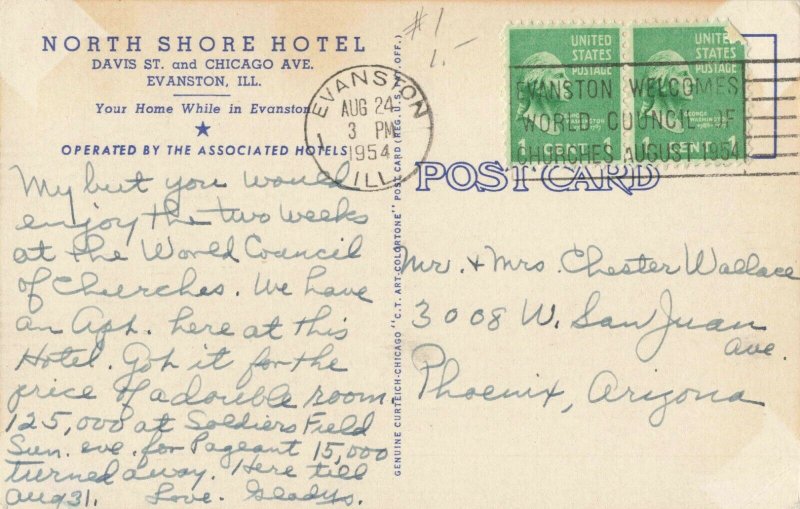 NORTH SHORE HOTEL
DAVIS ST. and CHICAGO AVE.
EVANSTON, ILL.
Your Home While in Evanston
★
OPERATED BY THE ASSOCIATED HOTELS
My but you would
enjoy the two weeks
at the World Council
of Churches. We have
an Apt. here at this
Hotel. Got it for the
price of a double room.
125,000 at Soldiers Field
Sun. eve. for Pageant 15,000
turned away. Here till
Aug 31. Love. Gladys.
#1
1.-
EVANSTON
AUG 24
3 PM
1954
ILL.
GENUINE CURTEICH-CHICAGO "C.T. ART-COLORTONE" POST CARD (REG. U.S. PAT. OFF.)
UNITED
STATES
POSTAGE
GEORGE
WASHINGTON
1 CENT 1
UNITED
STATES
POSTAGE
GEORGE
WASHINGTON
1 CENT 1
EVANSTON WELCOMES
WORLD COUNCIL OF
CHURCHES AUGUST 1954
POST CARD
Mr. + Mrs. Chester Wallace
3008 W. San Juan
Ave.
Phoenix, Arizona